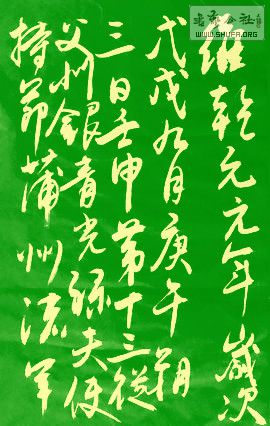 書法公社
WWW.SHUFA.ORG
維乾元元年歲次
戊戌九月庚午朔
三日壬申第十三從
父州銀青光祿夫使
持節蒲州諸軍